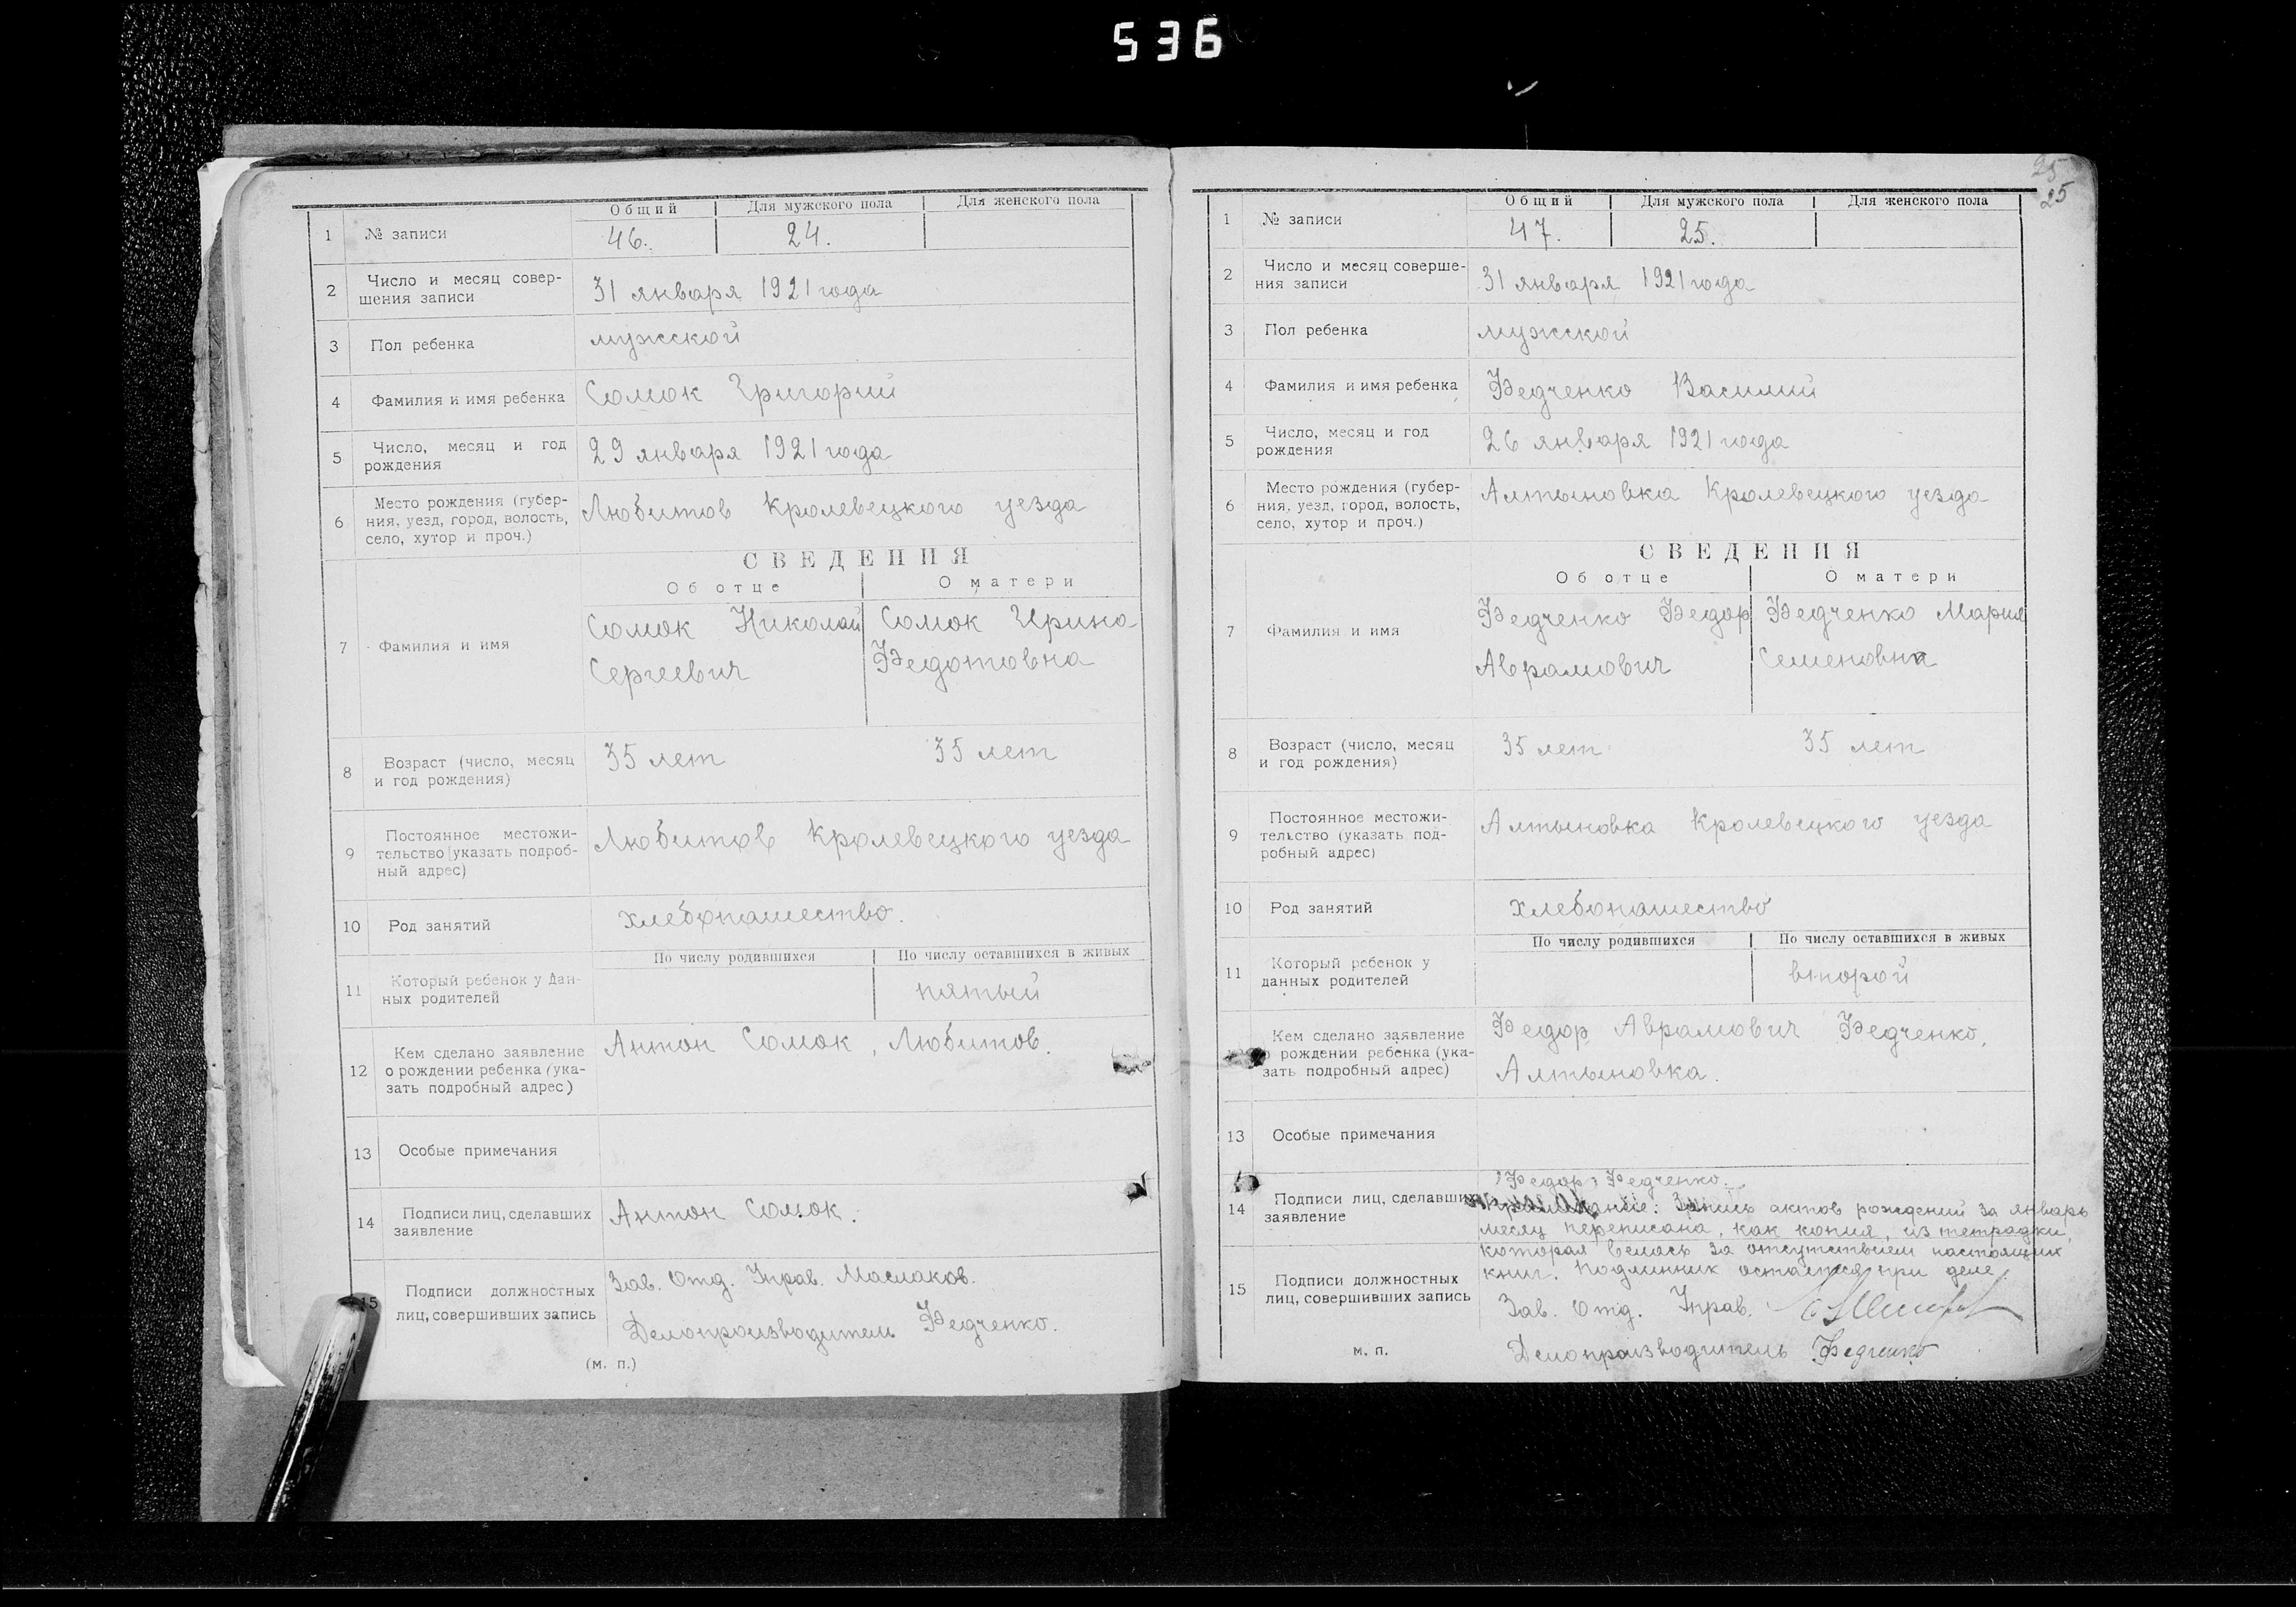 536
Общий Для мужского пола Для женского пола
1 № записи 46. 24.
2 Число и месяц совер-
шения записи 31 января 1921 года
3 Пол ребенка мужской
4 Фамилия и имя ребенка Сомок Григорий
5 Число, месяц и год
рождения 29 января 1921 года
6 Место рождения (губер-
ния, уезд, город, волость,
село, хутор и проч.) Любитов Кролевецкого уезда
СВЕДЕНИЯ
Об отце О матери
7 Фамилия и имя Сомок Николай Сомок Ирина
Сергеевич Федотовна
8 Возраст (число, месяц
и год рождения) 35 лет 35 лет
9 Постоянное местожи-
тельство [указать подроб-
ный адрес) Любитов Кролевецкого уезда
10 Род занятий хлебопашество.
По числу родившихся По числу оставшихся в живых
11 Который ребенок у дан-
ных родителей пятый
12 Кем сделано заявление
о рождении ребенка (ука-
зать подробный адрес) Антон Сомок, Любитов.
13 Особые примечания
14 Подписи лиц, сделавших
заявление Антон Сомок.
15 Подписи должностных
лиц, совершивших запись Зав. Отд. Управ. Маслаков.
Делопроизводитель Федченко.
(м. п.)
25
25
Общий Для мужского пола Для женского пола
1 № записи 47. 25.
2 Число и месяц соверше-
ния записи 31 января 1921 года
3 Пол ребенка мужской
4 Фамилия и имя ребенка Федченко Василий
5 Число, месяц и год
рождения 26 января 1921 года
6 Место рождения (губер-
ния, уезд, город, волость,
село, хутор и проч.) Алтыновка Кролевецкого уезда
СВЕДЕНИЯ
Об отце О матери
7 Фамилия и имя Федченко Федор Федченко Мария
Аврамович Семеновна
8 Возраст (число, месяц
и год рождения) 35 лет 35 лет
9 Постоянное местожи-
тельство (указать под-
робный адрес) Алтыновка Кролевецкого уезда
10 Род занятий хлебопашество
По числу родившихся По числу оставшихся в живых
11 Который ребенок у
данных родителей второй
Кем сделано заявление
рождении ребенка (ука-
зать подробный адрес) Федор Аврамович Федченко,
Алтыновка.
13 Особые примечания
Федор Федченко.
14 Подписи лиц, сделавших
заявление Примечание: Запись актов рождений за январь
месяц переписана, как копия, из тетрадки,
которая велась за отсутствием настоящих
книг. Подлинник остается при деле.
15 Подписи должностных
лиц, совершивших запись Зав. Отд. Управ.
Делопроизводитель Федченко
м. п.